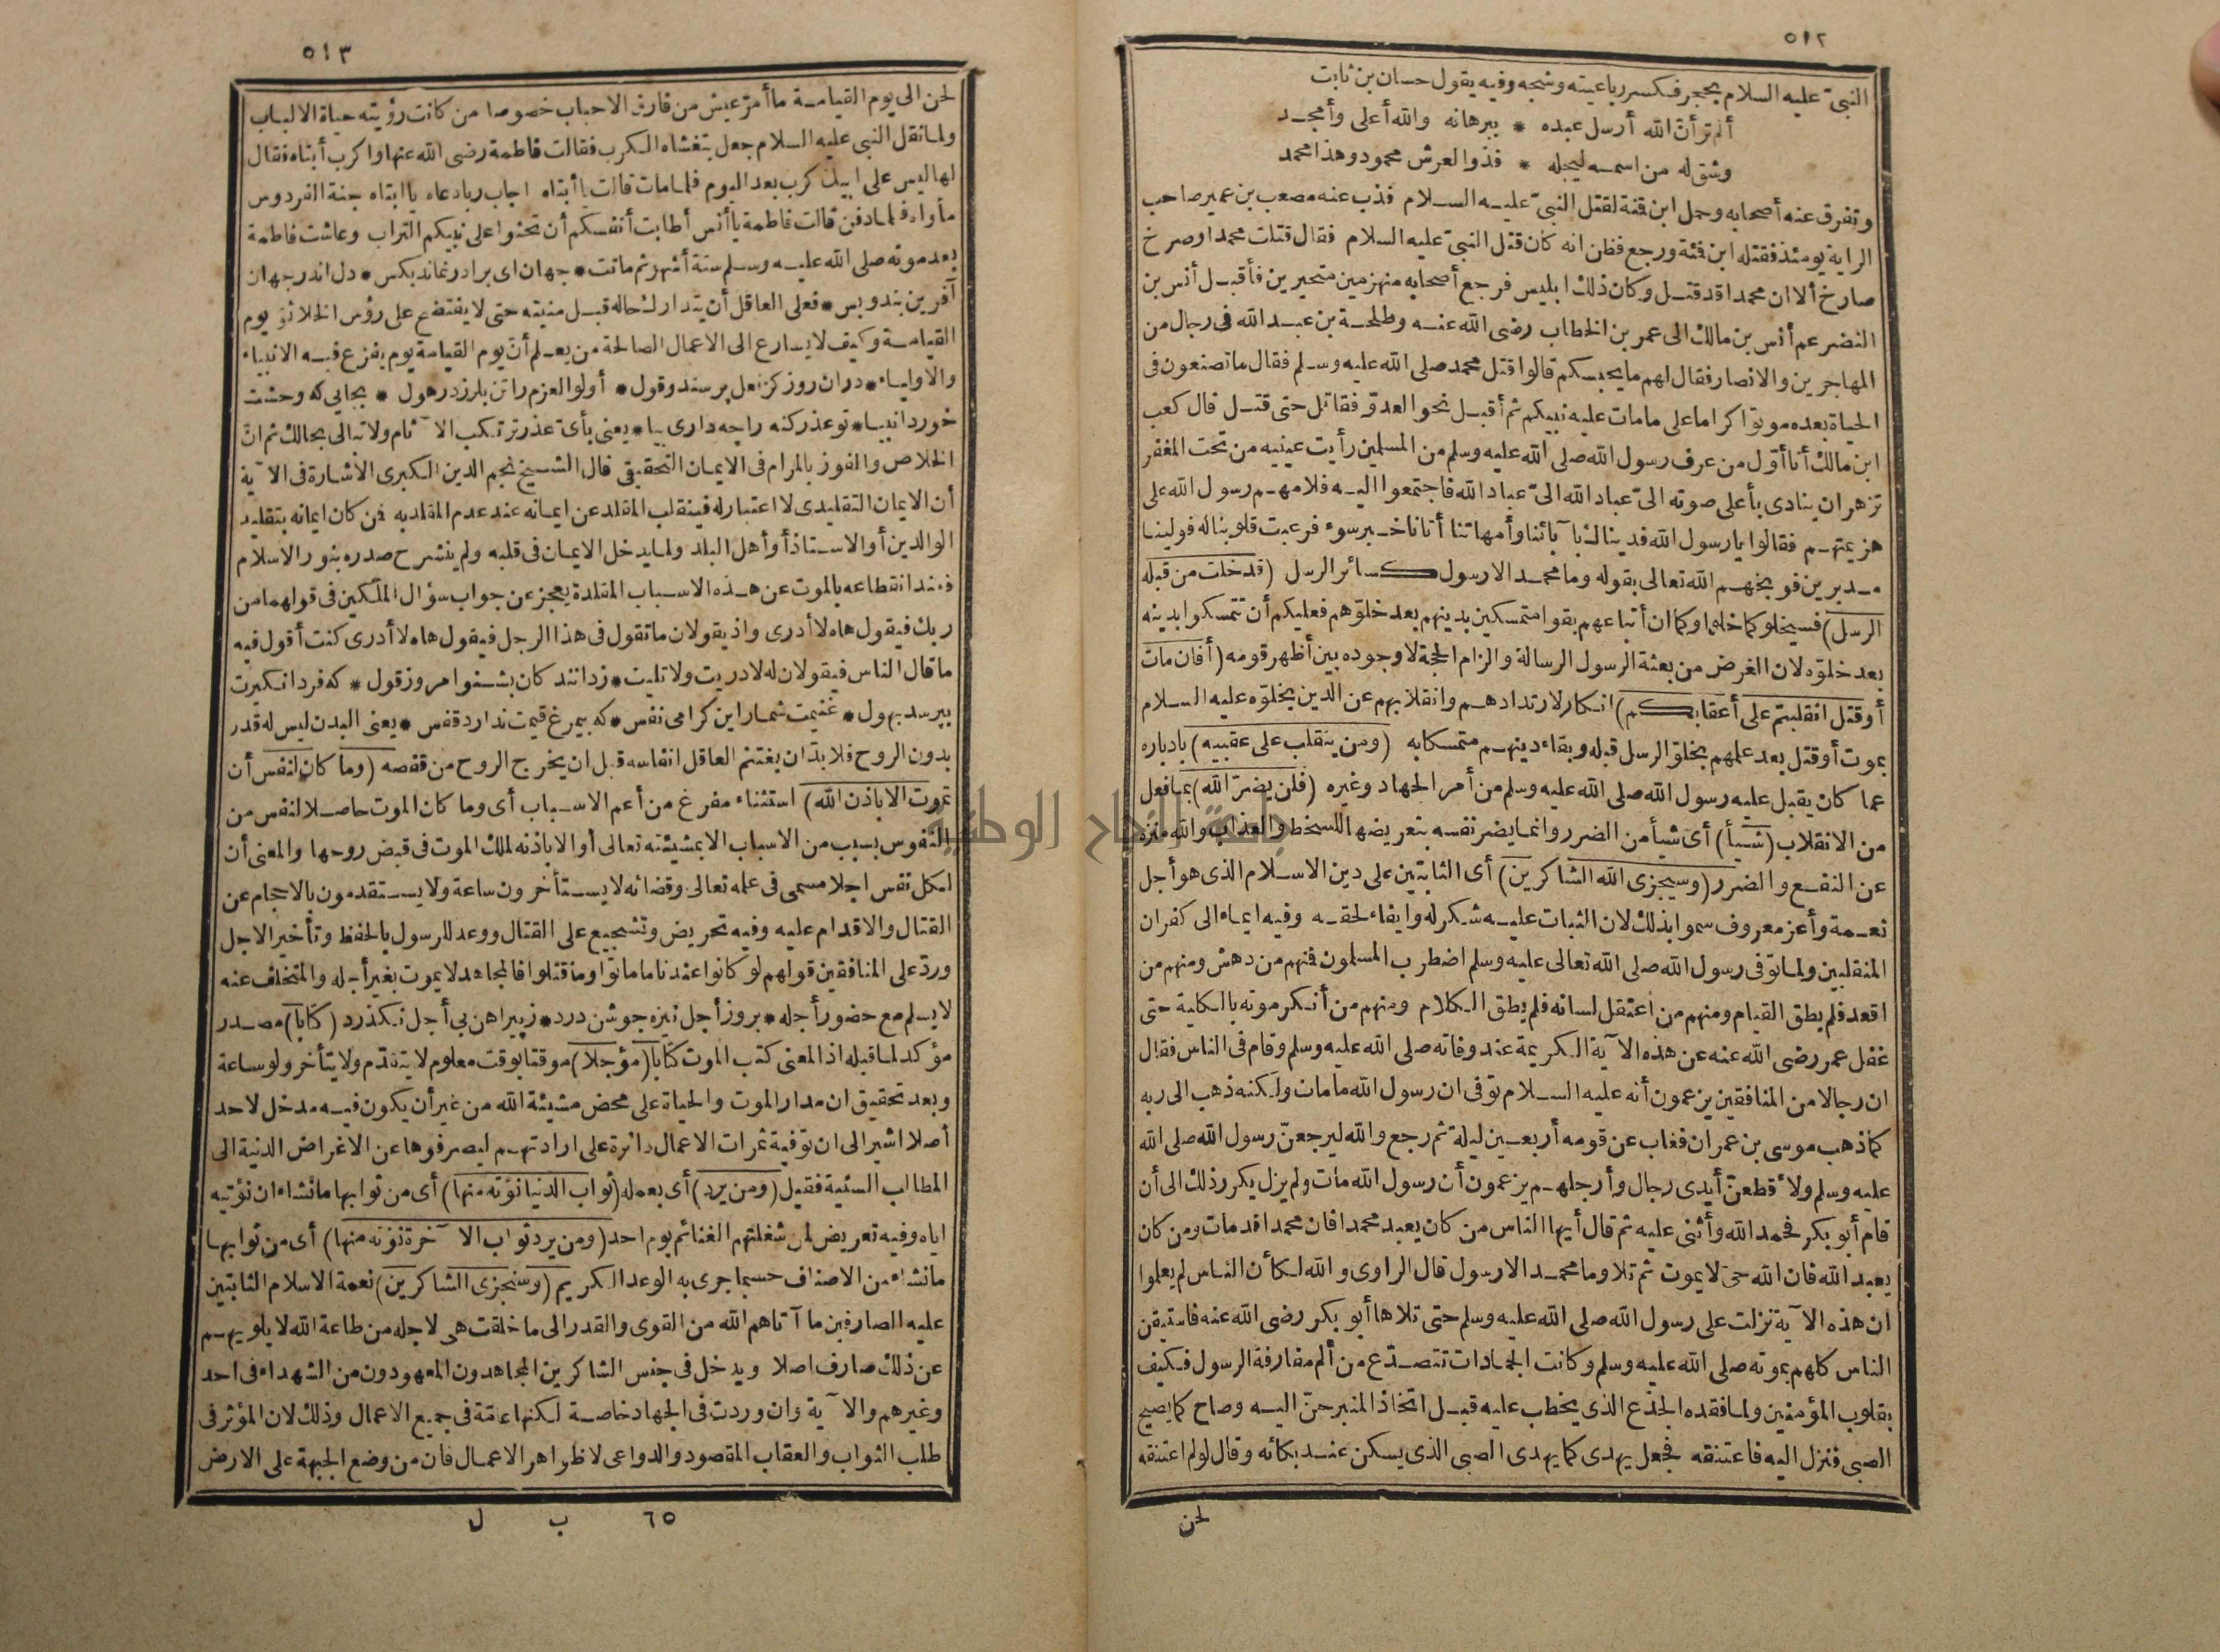 ٥١٢
النبىّ عليه السلام بحجر فكسر رباعيته وشجه وفيه يقول حسان بن ثابت
ألم تر أن الله أرسل عبده * ببرهانه والله أعلى وأمجد
وشق له من اسمه ليجله * فذو العرش محمود وهذا محمد
وتفرق عنه أصحابه وحمل ابن قمئة لقتل النبىّ عليه السلام فذب عنه مصعب بن عمير صاحب
الراية يومئذ فقتله ابن قمئة ورجع فظن انه كان قتل النبىّ عليه السلام فقال قتلت محمدا وصرخ
صارخ ألا ان محمدا قد قتل وكان ذلك ابليس فرجع أصحابه منهزمين متحيرين فأقبل أنس بن
النضر عم أنس بن مالك الى عمر بن الخطاب رضى الله عنه وطلحة بن عبد الله فى رجال من
المهاجرين والانصار فقال لهم ما يحبسكم قالوا قتل محمد صلى الله عليه وسلم فقال ما تصنعون فى
الحياة بعده موتوا كراما على مامات عليه نبيكم ثم أقبل نحو العدوّ فقاتل حتى قتل قال كعب
ابن مالك أنا أوّل من عرف رسول الله صلى الله عليه وسلم من المسلمين رأيت عينيه من تحت المغفر
تزهران ينادى بأعلى صوته الىّ عباد الله الىّ عباد الله فاجتمعوا اليه فلامهم رسول الله على
هزيمتهم فقالوا يا رسول الله فديناك بآبائنا وأمهاتنا أتانا خبر سوء فرعبت قلوبنا له فولينا
مدبرين فوبخهم الله تعالى بقوله وما محمد الا رسول كسائر الرسل (قد خلت من قبله
الرسل) فسيخلو كما خلوا وكما ان أتباعهم بقوا متمسكين بدينهم بعد خلوّهم فعليكم أن تتمسكوا بدينه
بعد خلوّه لان الغرض من بعثة الرسول الرسالة والزام الحجة لا وجوده بين أظهر قومه (أفان مات
أو قتل انقلبتم على أعقابكم) انكار لارتدادهم وانقلابهم عن الدين بخلوّه عليه السلام
بموت أو قتل بعد علمهم بخلوّ الرسل قبله وبقاء دينهم متمسكا به (ومن ينقلب على عقبيه) بادباره
عما كان يقبل عليه رسول الله صلى الله عليه وسلم من أمر الجهاد وغيره (فلن يضرّ الله) بما فعل
من الانقلاب (شيأ) أى شيأ من الضرر وانما يضر نفسه بتعريضها للسخط والعذاب والله منزه
عن النفع والضرر (وسيجزى الله الشاكرين) أى الثابتين على دين الاسلام الذى هو أجل
نعمة وأعز معروف سموا بذلك لان الثبات عليه شكر له وايفاء لحقه وفيه ايماء الى كفران
المنقلبين ولما توفى رسول الله صلى الله تعالى عليه وسلم اضطرب المسلمون فمنهم من دهش ومنهم من
اقعد فلم يطق القيام ومنهم من اعتقل لسانه فلم يطق الكلام ومنهم من أنكر موته بالكلية حتى
غفل عمر رضى الله عنه عن هذه الآية الكريمة عند وفاته صلى الله عليه وسلم وقام فى الناس فقال
ان رجالا من المنافقين يزعمون أنه عليه السلام توفى ان رسول الله مامات ولكنه ذهب الى ربه
كما ذهب موسى بن عمران فغاب عن قومه أربعين ليلة ثم رجع والله ليرجعنّ رسول الله صلى الله
عليه وسلم ولأقطعنّ أيدى رجال وأرجلهم يزعمون أن رسول الله مات ولم يزل يكرر ذلك الى أن
قام أبو بكر فحمد الله وأثنى عليه ثم قال أيها الناس من كان يعبد محمدا فان محمدا قد مات ومن كان
يعبد الله فان الله حىّ لا يموت ثم تلا وما محمد الا رسول قال الراوى والله لكأن الناس لم يعلموا
ان هذه الآية نزلت على رسول الله صلى الله عليه وسلم حتى تلاها أبو بكر رضى الله عنه فاستيقن
الناس كلهم بموته صلى الله عليه وسلم وكانت الجمادات تتصدّع من ألم مفارقة الرسول فكيف
بقلوب المؤمنين ولما فقده الجذع الذى يخطب عليه قبل اتخاذ المنبر حنّ اليه وصاح كما يصيح
الصبى فنزل اليه فاعتنقه فجعل يهدى كما يهدى الصبى الذى يسكن عند بكائه وقال لو لم اعتنقه
لحن
٥١٣
لحن الى يوم القيامة ما أمرّ عيش من فارق الاحباب خصوصا من كانت رؤيته حياة الالباب
ولما نقل النبى عليه السلام جعل يتغشاه الكرب فقالت فاطمة رضى الله عنها واكرب أبتاه فقال
لها ليس على ابيك كرب بعد اليوم فلما مات قالت يا أبتاه اجاب ربا دعاه يا ابتاه جنة الفردوس
مأواه فلما دفن قالت فاطمة يا أنس أطابت أنفسكم أن تحثوا على نبيكم التراب وعاشت فاطمة
بعد موته صلى الله عليه وسلم ستة أشهر ثم ماتت * جهان اى برادر نماند بكس * دل اندر جهان
آفرين بند وبس * فعلى العاقل أن يتدارك حاله قبل منيته حتى لا يفتضح على رؤس الخلائق يوم
القيامة وكيف لا يسارع الى الاعمال الصالحة من يعلم أن يوم القيامة يوم يفزع فيه الانبياء
والاولياء * دران روز كز فعل پرسند وقول * أولو العزم را تن بلرزد ز هول * بجايى كه وحشت
خورد انبيا * تو عذر كنه را چه دارى بيا * يعنى بأىّ عذر ترتكب الآثام ولا تبالى بحالك ثم انّ
الخلاص والفوز بالمرام فى الايمان التحقيقى قال الشيخ نجم الدين الكبرى الاشارة فى الآية
أن الايمان التقليدى لا اعتبار له فينقلب المقلد عن ايمانه عند عدم المقلد به فمن كان ايمانه بتقليد
الوالدين أو الاستاذ أو أهل البلد ولما يدخل الايمان فى قلبه ولم ينشرح صدره بنور الاسلام
فعند انقطاعه بالموت عن هذه الاسباب المقلدة يعجز عن جواب سؤال الملكين فى قولهما من
ربك فيقول هاه لا أدرى واذ يقولان ما تقول فى هذا الرجل فيقول هاه لا أدرى كنت أقول فيه
ما قال الناس فيقولان له لا دريت ولا تليت * ز دانندكان بشنو امروز قول * كه فردا نكيرت
بپرسد بهول * غنيمت شمار اين كرامى نفس * كه بى مرغ قيمت ندارد قفس * يعنى البدن ليس له قدر
بدون الروح فلا بدّ ان يغتنم العاقل انفاسه قبل ان يخرج الروح من قفصه (وما كان لنفس أن
تموت الا باذن الله) استثناء مفرغ من أعم الاسباب أى وما كان الموت حاصلا لنفس من
النفوس بسبب من الاسباب الا بمشيئته تعالى أو الا باذنه لملك الموت فى قبض روحها والمعنى أن
لكل نفس اجلا مسمى فى علمه تعالى وقضائه لا يستأخرون ساعة ولا يستقدمون بالاحجام عن
القتال والاقدام عليه وفيه تحريض وتشجيع على القتال ووعد للرسول بالحفظ وتأخير الاجل
وردّ على المنافقين قولهم لو كانوا عندنا ما ماتوا وما قتلوا فالمجاهد لا يموت بغير أجله والمتخلف عنه
لا يسلم مع حضور أجله * بروز أجل نيزه جوشن درد * ز پيراهن بى أجل نكذرد (كتابا) مصدر
مؤكد لما قبله اذ المعنى كتب الموت كتابا (مؤجلا) موقتا بوقت معلوم لا يتقدّم ولا يتأخر ولو ساعة
وبعد تحقيق ان مدار الموت والحياة على محض مشيئة الله من غير أن يكون فيه مدخل لاحد
أصلا اشير الى ان توفية ثمرات الاعمال دائرة على ارادتهم ليصرفوها عن الاغراض الدنية الى
المطالب السنية فقيل (ومن يرد) أى بعمله (ثواب الدنيا نؤته منها) أى من ثوابها ما نشاء ان نؤتيه
اياه وفيه تعريض لمن شغلتهم الغنائم يوم احد (ومن يرد ثواب الآخرة نؤته منها) أى من ثوابها
ما نشاء من الاصناف حسبما جرى به الوعد الكريم (وسنجزى الشاكرين) نعمة الاسلام الثابتين
عليه الصارفين ما آتاهم الله من القوى والقدر الى ما خلقت هى لاجله من طاعة الله لا يلويهم
عن ذلك صارف اصلا ويدخل فى جنس الشاكرين المجاهدون المعهودون من الشهداء فى احد
وغيرهم والآية وان وردت فى الجهاد خاصة لكنها عامّة فى جميع الاعمال وذلك لان المؤثر فى
طلب الثواب والعقاب المقصود والدواعى لا ظواهر الاعمال فان من وضع الجبهة على الارض
٦٥ ب ل
جامعة النجاح الوطنية